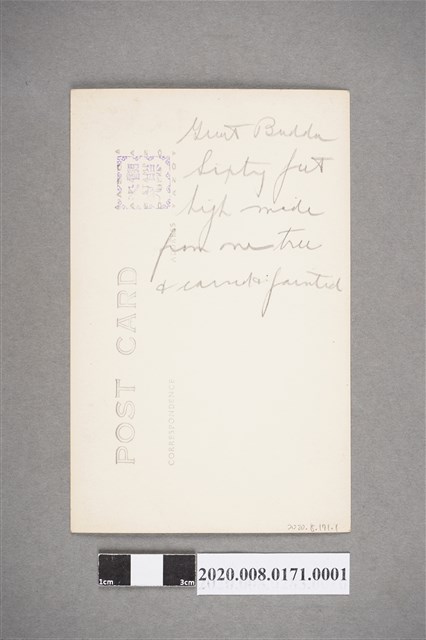 Great Budda
Sixty feet
high made
from one tree
& carved & painted
POST CARD
ADDRESS
CORRESPONDENCE
2020.8.191-1
1cm
3cm
2020.008.0171.0001